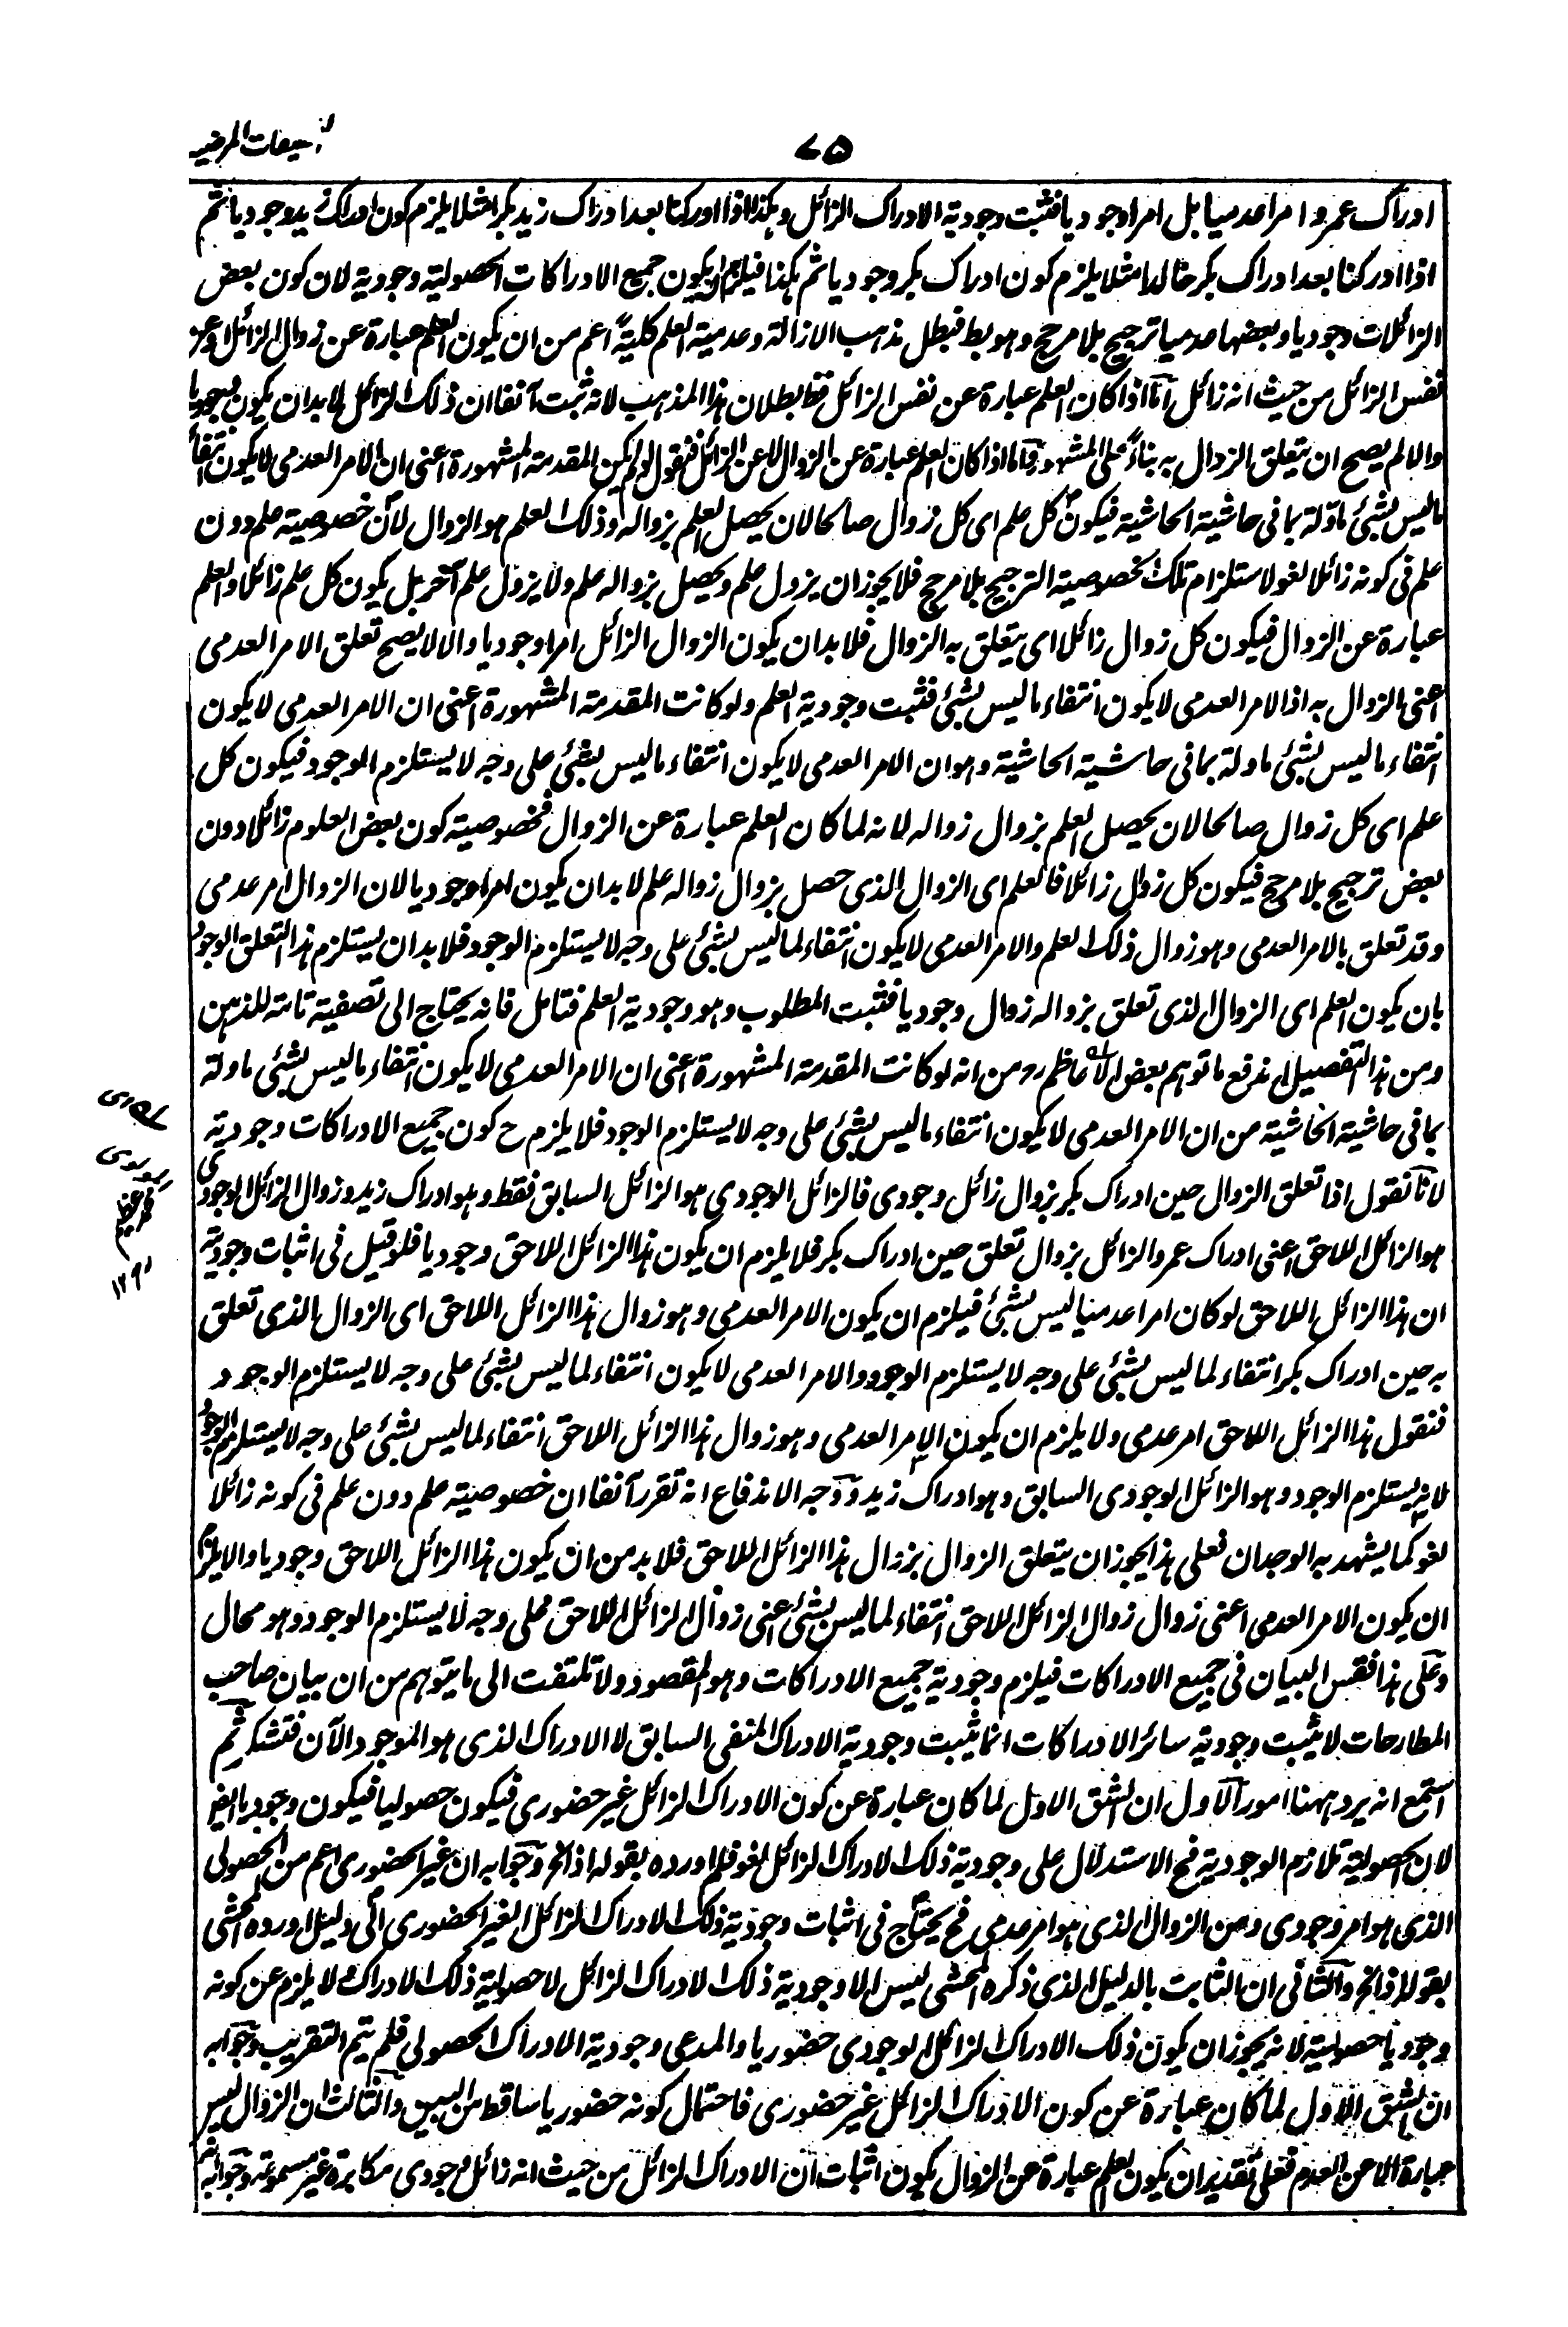 ٧٥
ادراك عمرو امرا عدميا بل امرا وجوديا فثبت وجودية الادراك الزائل وهكذا اذا ادركنا بعد ادراك زيد بكرا مثلا يلزم كون ادراك زيد وجوديا ثم
اذا ادركنا بعد ادراك بكر خالدا مثلا يلزم كون ادراك بكر وجوديا ثم هكذا فيلزم ان يكون جميع الادراكات الحصولية وجودية لان كون بعض
الزائلات وجوديا وبعضها عدميا ترجيح بلا مرجح وهو بط فبطل مذهب الازالة وعدمية العلم كلية اعم من ان يكون العلم عبارة عن زوال الزائل او عن
نفس الزائل من حيث انه زائل اما اذا كان العلم عبارة عن نفس الزائل فظ بطلان هذا المذهب لانه ثبت آنفا ان ذلك الزائل لابد ان يكون وجوديا
والا لم يصح ان يتعلق الزوال به بناءً على المشهور واما اذا كان العلم عبارة عن الزوال لا عن الزائل فنقول لو لم يكن المقدمة المشهورة اعنى ان الامر العدمى لا يكون انتفاءً
ما ليس بشئ ماوّلة بما فى حاشية الحاشية فيكون كل علم اى كل زوال صالحا لان يحصل العلم بزواله وذلك العلم هو الزوال لان خصوصية علم دون
علم فى كونه زائلا لغو لاستلزام تلك الخصوصية الترجيح بلا مرجح فلا يجوز ان يزول علم ويحصل بزواله علم ولا يزول علم آخر بل يكون كل علم زائلا والعلم
عبارة عن الزوال فيكون كل زوال زائلا اى يتعلق به الزوال فلابد ان يكون الزوال الزائل امرا وجوديا والا لا يصح تعلق الامر العدمى
اعنى الزوال به اذ الامر العدمى لا يكون انتفاء ما ليس بشئ فثبت وجودية العلم ولو كانت المقدمة المشهورة اعنى ان الامر العدمى لا يكون
انتفاء ما ليس بشئ ماولة بما فى حاشية الحاشية وهو ان الامر العدمى لا يكون انتفاء ما ليس بشئ على وجه لا يستلزم الوجود فيكون كل
علم اى كل زوال صالحا لان يحصل العلم بزوال زواله لانه لما كان العلم عبارة عن الزوال فخصوصية كون بعض العلوم زائلا دون
بعض ترجيح بلا مرجح فيكون كل زوال زائلا فالعلم اى الزوال الذى حصل بزوال زواله علم لابد ان يكون امرا وجوديا لان الزوال امر عدمى
وقد تعلق بالامر العدمى وهو زوال ذلك العلم والامر العدمى لا يكون انتفاء لما ليس بشئ على وجه لا يستلزم الوجود فلابد ان يستلزم هذا التعلق الوجود
بان يكون العلم اى الزوال الذى تعلق بزواله زوال وجوديا فثبت المطلوب وهو وجودية العلم فتامل فانه يحتاج الى تصفية تامة للذهن
ومن هذا التفصيل اندفع ما توهم بعض الاعاظم رح من انه لو كانت المقدمة المشهورة اعنى ان الامر العدمى لا يكون انتفاء ما ليس بشئ ماولة
بما فى حاشية الحاشية من ان الامر العدمى لا يكون انتفاء ما ليس بشئ على وجه لا يستلزم الوجود فلا يلزم ح كون جميع الادراكات وجودية
لانا نقول اذا تعلق الزوال حين ادراك بكر بزوال زائل وجودى فالزائل الوجودى هو الزائل السابق فقط وهو ادراك زيد وزوال الزائل الوجودى
هو الزائل اللاحق اعنى ادراك عمرو الزائل بزوال تعلق حين ادراك بكر فلا يلزم ان يكون هذا الزائل اللاحق وجوديا فلو قيل فى اثبات وجودية
ان هذا الزائل اللاحق لو كان امرا عدميا ليس بشئ فيلزم ان يكون الامر العدمى وهو زوال هذا الزائل اللاحق اى الزوال الذى تعلق
به حين ادراك بكر انتفاء لما ليس بشئ على وجه لا يستلزم الوجود والامر العدمى لا يكون انتفاء لما ليس بشئ على وجه لا يستلزم الوجود
فنقول هذا الزائل اللاحق امر عدمى ولا يلزم ان يكون الامر العدمى وهو زوال هذا الزائل اللاحق انتفاء لما ليس بشئ على وجه لا يستلزم الوجود
لانه يستلزم الوجود وهو الزائل الوجودى السابق وهو ادراك زيد ووجه الاندفاع انه تقرر آنفا ان خصوصية علم دون علم فى كونه زائلا
لغو كما يشهد به الوجدان فعلى هذا يجوز ان يتعلق الزوال بزوال هذا الزائل اللاحق فلابد من ان يكون هذا الزائل اللاحق وجوديا والا يلزم
ان يكون الامر العدمى اعنى زوال زوال الزائل اللاحق انتفاء لما ليس بشئ اعنى زوال الزائل اللاحق على وجه لا يستلزم الوجود وهو محال
وعلى هذا فقس البيان فى جميع الادراكات فيلزم وجودية جميع الادراكات وهو المقصود ولا تلتفت الى ما يتوهم من ان بيان صاحب
المطارحات لا يثبت وجودية سائر الادراكات انما يثبت وجودية الادراك المنفى السابق لا الادراك الذى هو الموجود الآن فتشكر ثم
استمع انه يرد ههنا امور الاول ان الشق الاول لما كان عبارة عن كون الادراك الزائل غير حضورى فيكون حصوليا فيكون وجوديا ايضا
لان الحصولية تلازم الوجودية فح الاستدلال على وجودية ذلك الادراك الزائل لغو فلم اورده بقوله اذ الخ وجوابه ان غير الحضورى اعم من الحصولى
الذى هو امر وجودى ومن الزوال الذى هو امر عدمى فح يحتاج فى اثبات وجودية ذلك الادراك الزائل الغير الحضورى الى دليل اورده المحشى
بقوله اذ الخ والثانى ان الثابت بالدليل الذى ذكره المحشى ليس الا وجودية ذلك الادراك الزائل لا حصولية ذلك الادراك لا يلزم عن كونه
وجوديا حصولية لانه يجوز ان يكون ذلك الادراك الزائل الوجودى حضوريا والمدعى وجودية الادراك الحصولى فلم يتم التقريب وجوابه
ان الشق الاول لما كان عبارة عن كون الادراك الزائل غير حضورى فاحتمال كونه حضوريا ساقط من البين والثالث ان الزوال ليس
عبارة الا عن العدم فعلى تقدير ان يكون العلم عبارة عن الزوال يكون اثبات ان الادراك الزائل من حيث انه زائل وجودى مكابرة غير مسموعة وجوابه
محمد عظيم